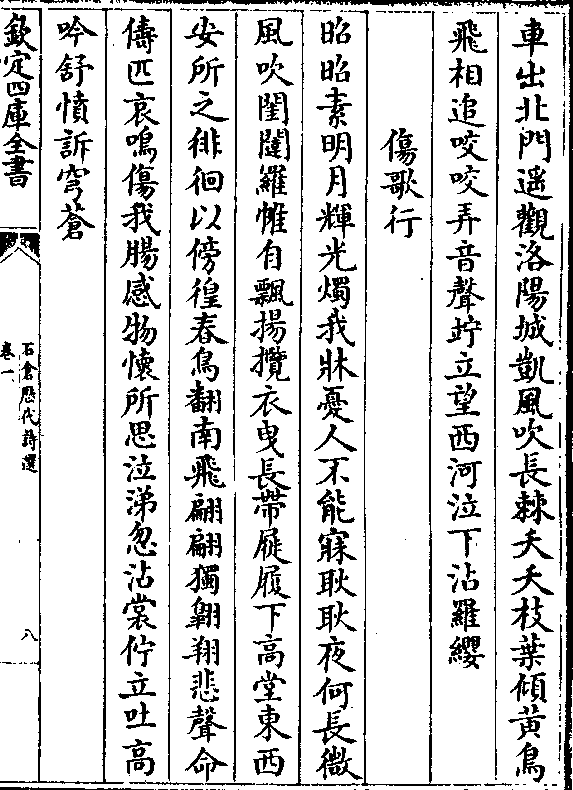 車出北門遥觀洛陽城凱風吹長棘夭夭枝葉傾黄鳥
飛相追咬咬弄音聲竚立望西河泣下沾羅纓
傷歌行
昭昭素明月輝光燭我牀憂人不能寐耿耿夜何長微
風吹閨闥羅帷自飄揚攬衣曳長帶屣履下高堂東西
安所之徘徊以傍徨春鳥翻南飛翩翩獨翺翔悲聲命
儔匹哀鳴傷我腸感物懷所思泣涕忽沾裳佇立吐高
吟舒憤訴穹蒼
欽定四庫全書
石倉歷代詩選
卷一
八